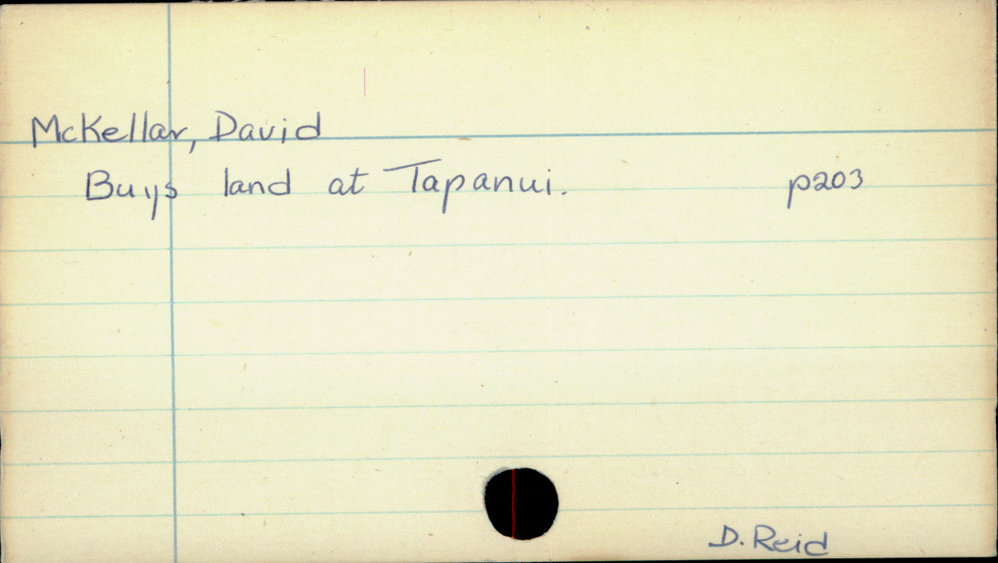 McKellar, David
Buys land at Tapanui. p203
D. Reid